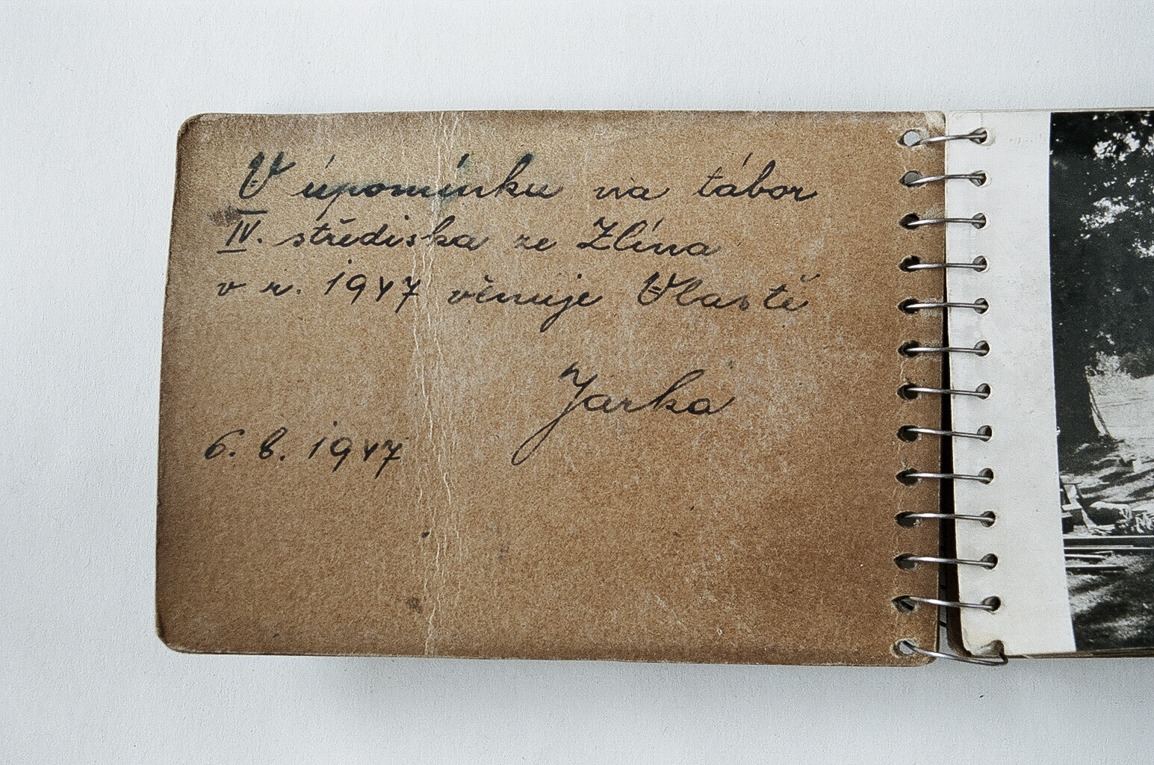 V úpomínku na tábor
IV. střediska ze Zlína
v r. 1947 věnuje Vlastě
Jarka
6. 8. 1947